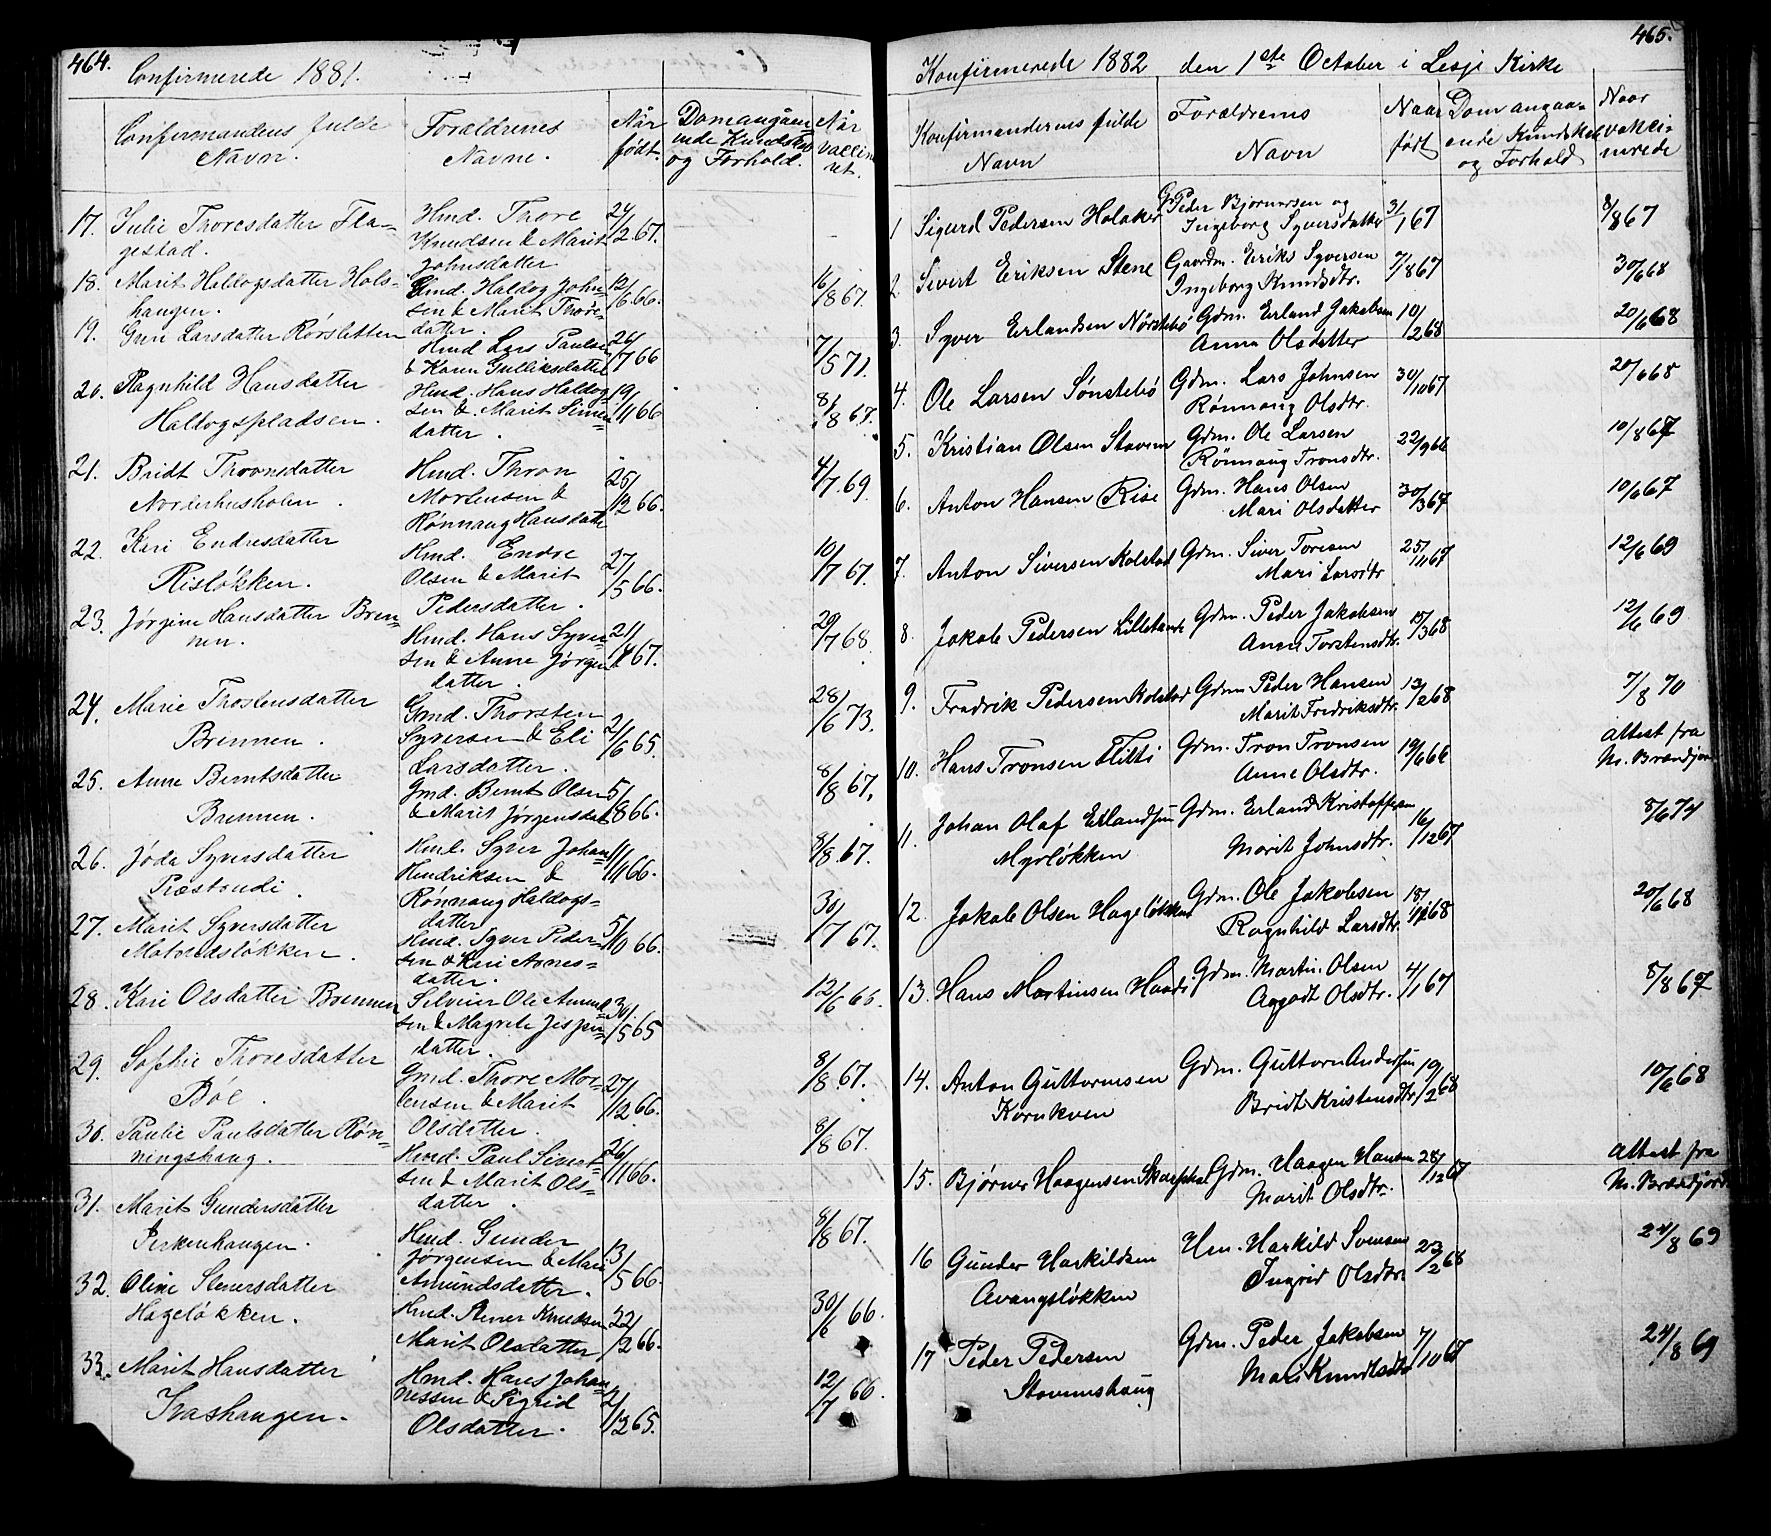 464.
Confirmerede 1881.
Confirmandens fulde
Navn.
Forældrenes
Navne.
Når
født.
Dom angåen
ende Kundskab
og Forhold.
Når
vaccin
ret.
17. Julie Thoresdatter Fla-
gestad.
Hmd. Thore
Knudsen & Marit
Johnsdatter
24/12 67.
18. Marit Haldogsdatter Hols-
haugen.
Gmd. Haldog John-
sen & Marit Thore-
datter.
12/6 66.
16/8 67.
19. Guri Larsdatter Rørsletten
Hmd Lars Paulsen
& Karin Gulliksdatter
24/7 66
7/5 71.
20. Ragnhild Hansdatter
Haldogspladsen.
Hmd. Hans Haldog-
sen & Marit Simen
datter.
19/11 66
8/8 67.
21. Bridt Thronsdatter
Norderhusholen.
Hmd. Thron
Mortensen &
Rønnaug Hansdatte
25/12 66.
4/7 69.
22. Kari Endresdatter
Risløkken.
Hmd. Endre
Olsen & Marit
Pedersdatter.
27/5 66.
10/7 67.
23. Jørgine Hansdatter Bren-
nen.
Hmd. Hans Syver-
sen & Anne Jørgen
datter.
21/1 67.
29/7 68.
24. Marie Thostensdatter
Brennen.
Gmd. Thorsten
Syversen & Eli
Larsdatter.
2/6 65.
28/6 73.
25. Anne Berntsdatter
Brennen.
Gmd. Bernt Olsen
& Marit Jørgensdat
5/8 66.
8/8 67.
26. Jøda Syversdatter
Præstrudi.
Hmd. Syver Johan
Hendriksen &
Rønnaug Haldogs-
datter
11/11 66.
8/8 67.
27. Marit Syversdatter
Hmd. Syver Peder-
sen & Kari Arnes-
datter.
5/10 66.
30/7 67.
28. Kari Olsdatter Brennen
Selveier Ole Amund-
sen & Magrete Jesper
datter.
30/5 65
12/6 66.
29. Sophie Thoresdatter
Böe.
Gmd. Thore Mor-
tensen & Marit
Olsdatter.
27/12 66.
8/8 67.
30. Paulie Paulsdatter Røn-
ningshaug.
Hmd. Paul Siver-
sen & Marit Ols-
datter.
26/11 66.
8/8 67.
31. Marit Gundersdatter
Hmd. Gunder
Jørgensen & Mari
Amundsdatter.
13/5 66.
8/8 67.
32. Oline Stenersdatter
Hageløkken.
Hmd. Stener Knudsen
Marit Olsdatter
22/12 66.
30/6 66.
33. Marit Hansdatter
Hmd. Hans Johan-
nessen & Sigrid
Olsdatter.
2/12 65.
12/7 66.
465.
Konfirmerede 1882 den 1ste October i Lesje Kirke
Konfirmandernes fulde
Navn
Forældrenes
Navn
Naar
født
Dom angaa-
ende Kundskab
og Forhold
Naar
vakci-
nerede
1 Sigurd Pedersen Holaker
G. Peder Bjørnersen og
Ingeborg Syversdatter
3/1 67
8/8 67
2 Sivert Eriksen Stene
Gaardm. Eriks Syversen
Ingeborg Knudsdtr.
7/8 67
30/6 68
3. Syver Erlandsen Nørstebö
Gdm. Erland Jakobsen
Anne Olsdatter
10/2 68
20/6 68
4. Ole Larsen Sønstebö
Gdm. Lars Johnsen
Rønnaug Olsdtr.
30/10 67
20/6 68
5. Kristian Olsen Stavem
Gdm. Ole Larsen
Rönnaug Tronsdtr.
22/9 66
10/8 67
6. Anton Hansen Rise
Gdm. Hans Olsen
Mari Olsdatter
30/3 67
10/6 67
7. Anton Siversen Kolstad
Gdm. Siver Toresen
Mari Larsdtr
25/11 67
12/6 69
8. Jakob Pedersen
Gdm. Peder Jakobsen
Anne Torstensdtr.
15/3 68
12/6 69
9. Fredrik Pedersen Kolstad
Gdm Peder Hansen
Marit Fredriksdtr.
13/2 68
7/8 70
10. Hans Tronsen Flitti
Gdm. Tron Tronsen
Anne Olsdtr.
19/6 66
Attest fra
M. Brandjord
11. Johan Olaf Erlandsen
Myrløkken
Gdm. Erland Kristoffersen
Marit Johnsdtr.
16/12 67
8/6 74
12. Jakob Olsen Hageløkken
Gdm. Ole Jakobsen
Ragnhild Larsdtr.
18/12 68
20/6 68
13. Hans Martinsen
Gdm. Martin Olsen
Aagodt Olsdtr.
4/1 67
8/8 67
14. Anton Guttormsen
Kornkven
Gdm. Guttorm Andersen
Bridt Kristensdtr.
19/2 68
10/6 68
15. Bjørner Haagensen
Gdm. Haagen Hansen
Marit Olsdtr.
28/12 67
Attest fra
M. Brandjord
16 Gunder Harkildsen
Avangsløkken
Hm. Harkild Svensen
Ingrid Olsdtr
23/2 68
24/8 69
17 Peder Pedersen
Stavemshaug
Gdm. Peder Jakobsen
Mari Knudtsdtr
7/10 67
24/8 69